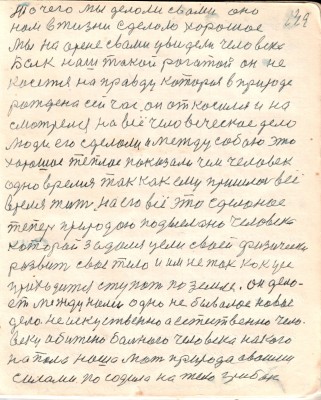 229
То чего мы делали с вами оно
нам в жизни сделало хорошое
Мы на арене с вами увидели человека
Бык наш такой рогатой он не
косется на правду которая в природе
рождена сейчас. он откосился и на
смотрелся на всё человеческое дело
Люди его сделали и между собою это
хорошое теплое показали чем человек
одно время так как ему пришлось всё
время жить. на его всё это сделоное
теперь природою подшелано человека
которай задался цели своей физически
развит свое тело и им не так как уже
приходится ступать по земле. он дела-
ет между ними одно не бывалое новое
дело не искуственно а естествено чело-
веку обижено больного человека на кого
напала наша мать природа своими
силами посодила на тело грибок